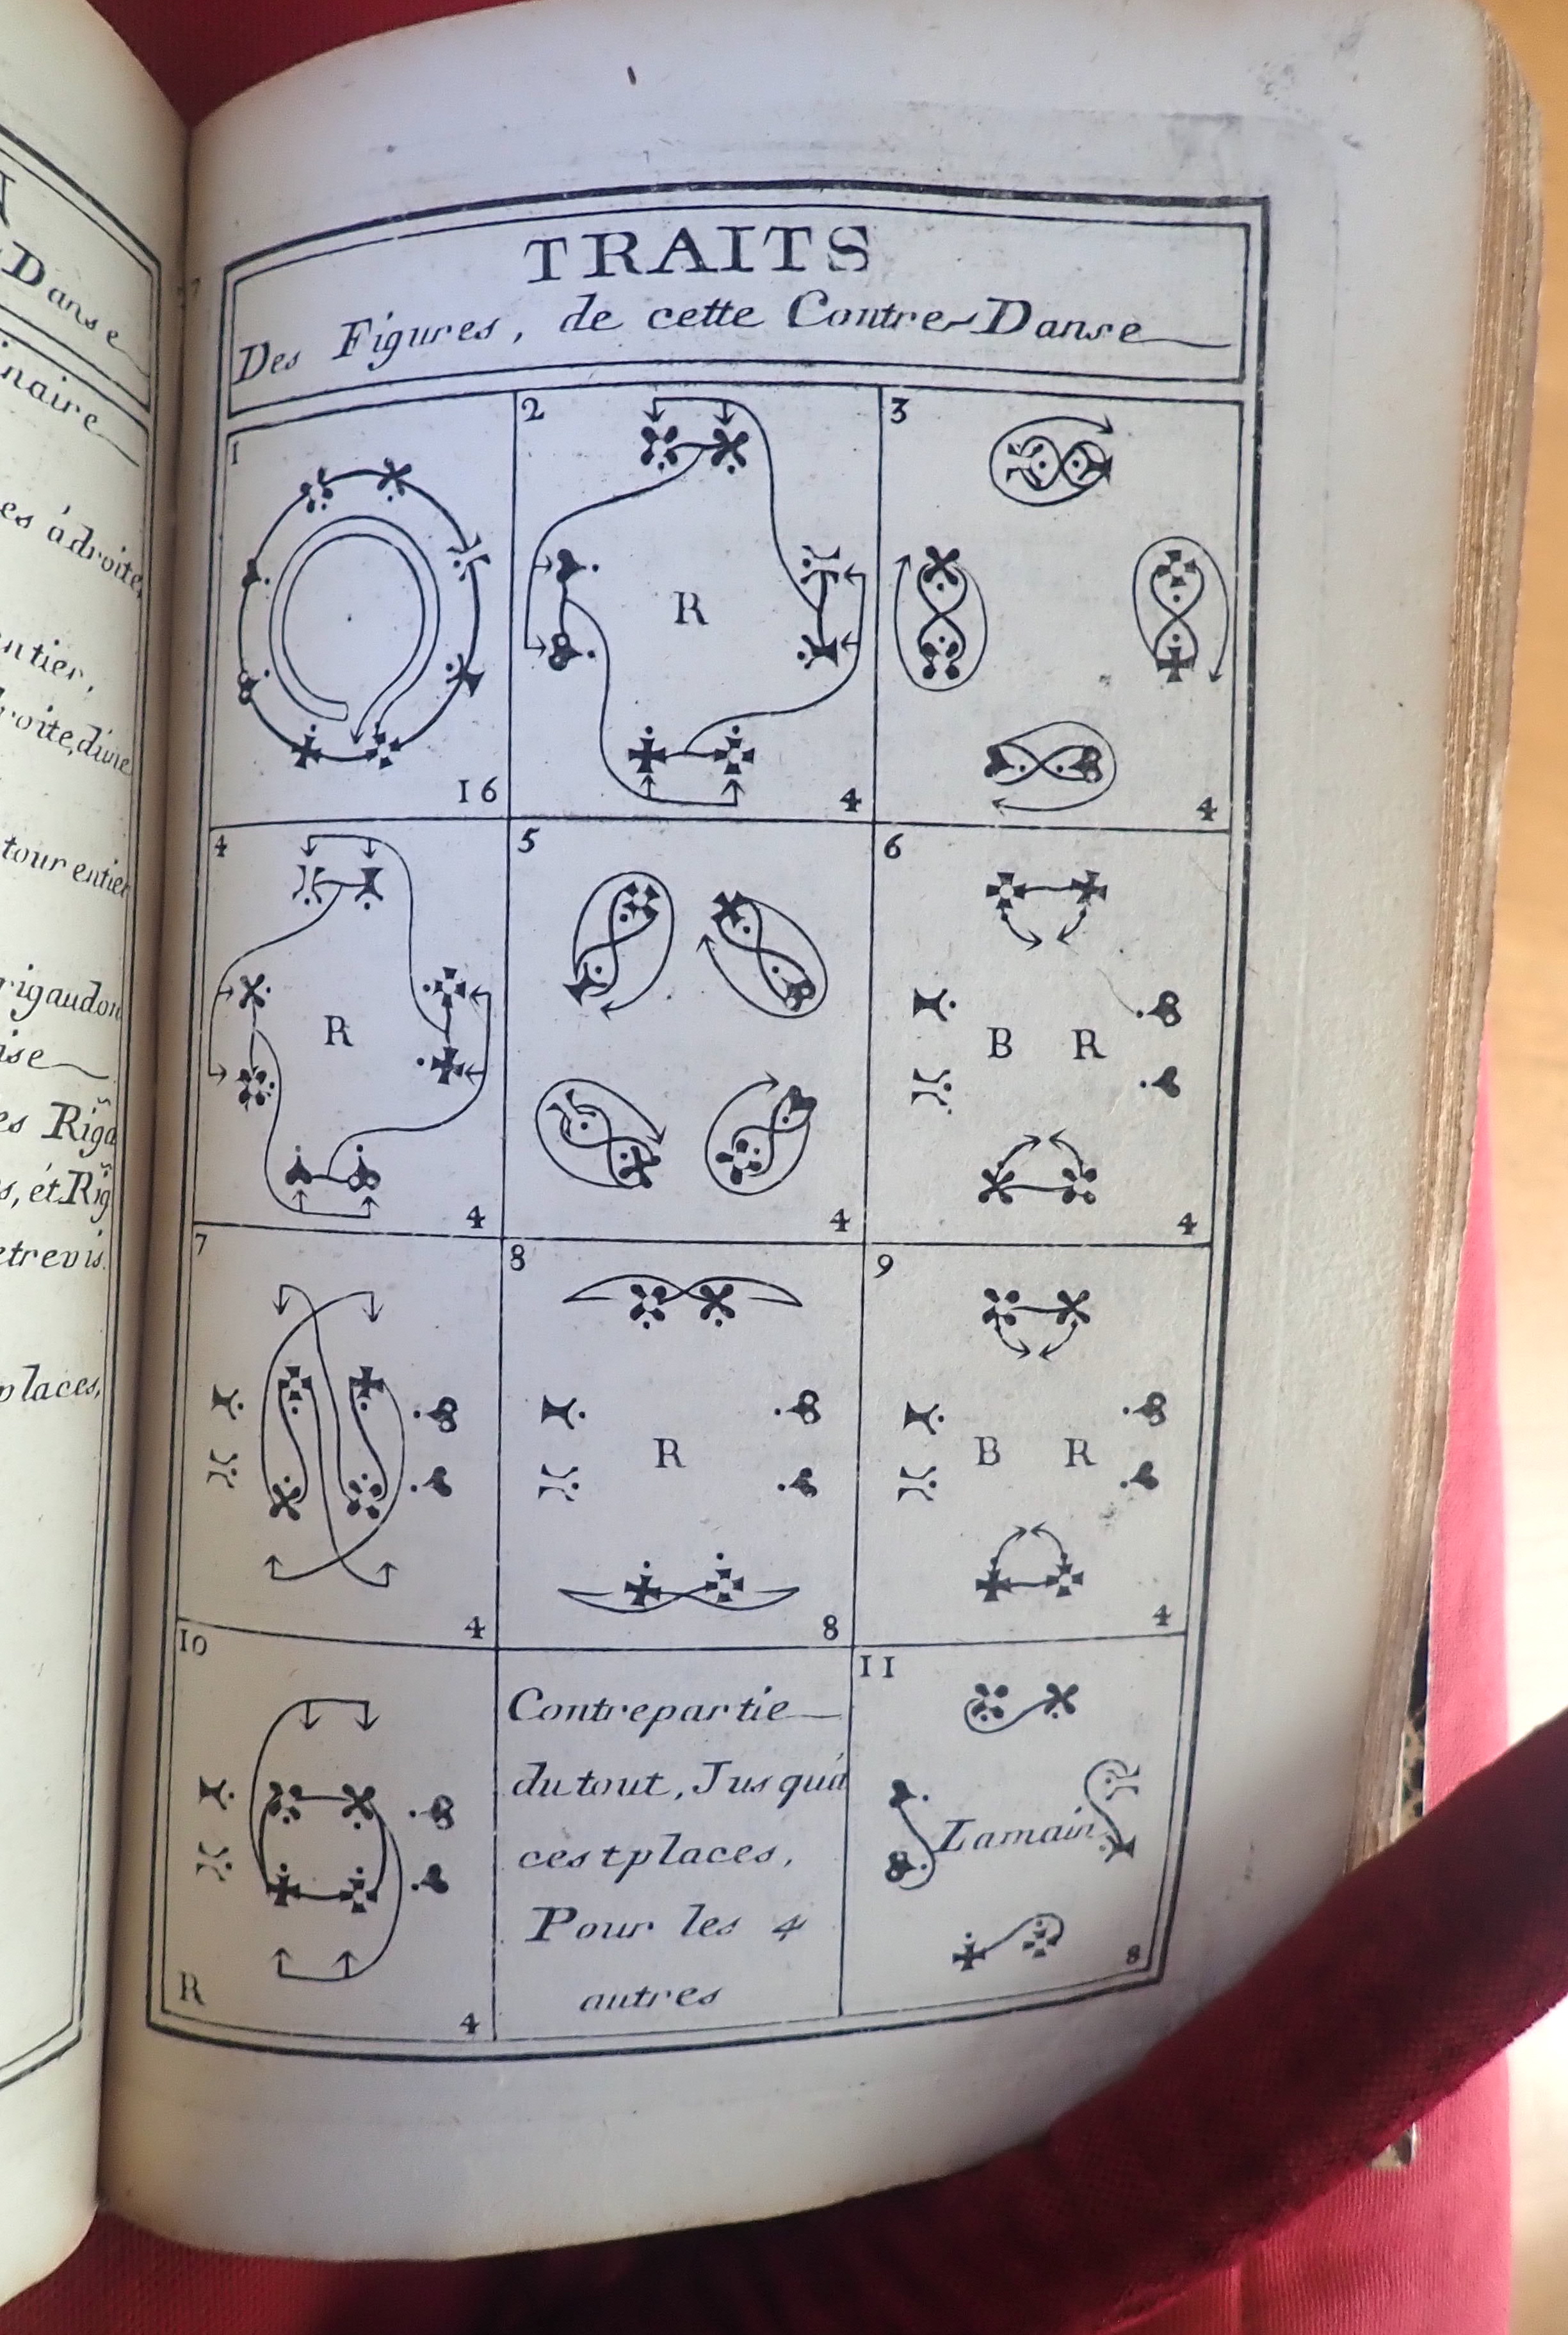 Danse
inaire
es à droite,
entier,
roite, d'une
tour entier
rigaudon
ise
es Rigd
s, ét Rig
etrevis.
places,
TRAITS
Des Figures, de cette Contre-Danse
1
16
2
R
4
3
4
4
R
4
5
4
6
B R
4
7
4
8
R
8
9
B R
4
10
R
4
Contrepartie
du tout, Jusquá
ces t places,
Pour les 4
autres
11
Lamain
8